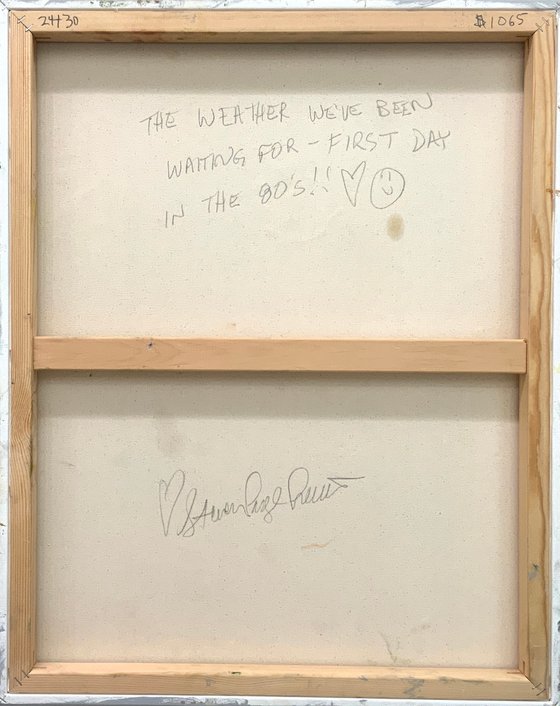 24x30
$1065
THE WEATHER WE'VE BEEN
WAITING FOR - FIRST DAY
IN THE 80'S!! ♡ ☺
♡ Steven Page